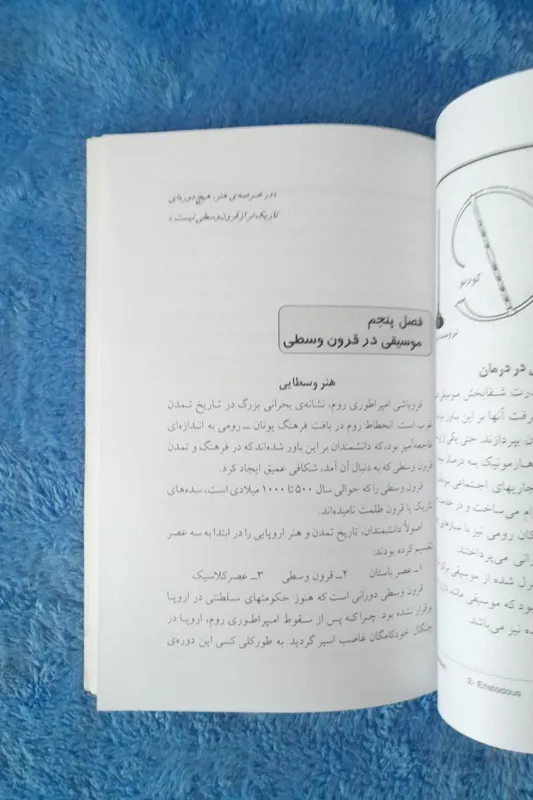 «در عرصه‌ی هنر، هیچ دوره‌ای
تاریک‌تر از قرون وسطی نیست»
فصل پنجم
موسیقی در قرون وسطی
هنر وسطایی
فروپاشی امپراطوری روم، نشانه‌ی بحرانی بزرگ در تاریخ تمدن
غرب است. انحطاط روم در بافت فرهنگ یونان ـ رومی به اندازه‌ای
فاجعه‌آمیز بود، که دانشمندان بر این باور شده‌اند که در فرهنگ و تمدن
قرون وسطی که به دنبال آن آمد، شکافی عمیق ایجاد کرد.
قرون وسطی را که حوالی سال ۵۰۰ تا ۱۰۰۰ میلادی است، سده‌های
تاریک یا قرون ظلمت نامیده‌اند.
اصولاً دانشمندان، تاریخ تمدن و هنر اروپایی را در ابتدا به سه عصر
تقسیم کرده بودند:
۱ـ عصر باستان ۲ـ قرون وسطی ۳ـ عصر کلاسیک
قرون وسطی دورانی است که هنوز حکومتهای سلطنتی در اروپا
برقرار نشده بود. چرا که پس از سقوط امپراطوری روم، اروپا در
چنگال خودکامگان غاصب اسیر گردید. به طور کلی کسی این دوره‌ی
کورنو
ی در درمان
قدرت شفابخش موسیقی
رفت آنها بر این باور
بپردازند. حتی یکی از
هارمونیک سه درصد
جاریهای اجتماعی بود
ام می‌ساخت و در خدمت
کان رومی نیز با سازهای
رانی می‌پرداختند.
رل شده از موسیقی برای
بود که موسیقی مانند
ده نیز می‌باشد.
2- Eristodous